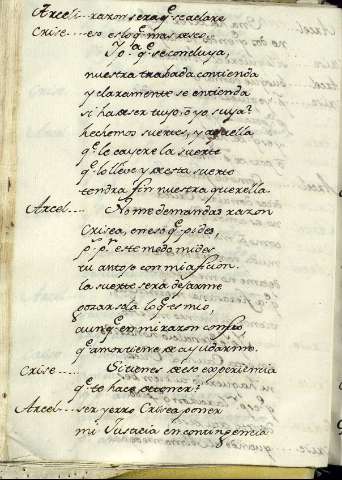 Arcel... razon sera q̃ se aclare
Crise.... eso es lo q̃ mas deseo
Yo pa q̃ se concluya,
nuestra trabada contienda
y claramente se entienda
si ha deser tuyo, o yo suya?
hechemos suertes, y aquella
q̃ le cayere la suerte
q̃ lo lleve y desta suerte
tendra fin nuestra querella.
Arcel.... No me demandas razon
Crisea, en eso q̃ pides,
ps. pr. este modo mides
tu antojo con mi aficion.
la suerte sera dejarme
gozar sola lo q̃ es mio,
aunq̃ en mi razon confio
q̃ amor tiene de ayudarme.
Crise..... Si tienes de eso experiencia
q̃ te hace detener?
Arcel... ser yerro Crisea poner
mi Justicia en contingencia